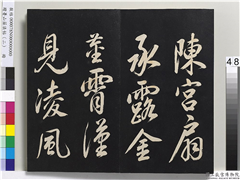 陳宮扇
承露金
莖霄漢
見凌風
48